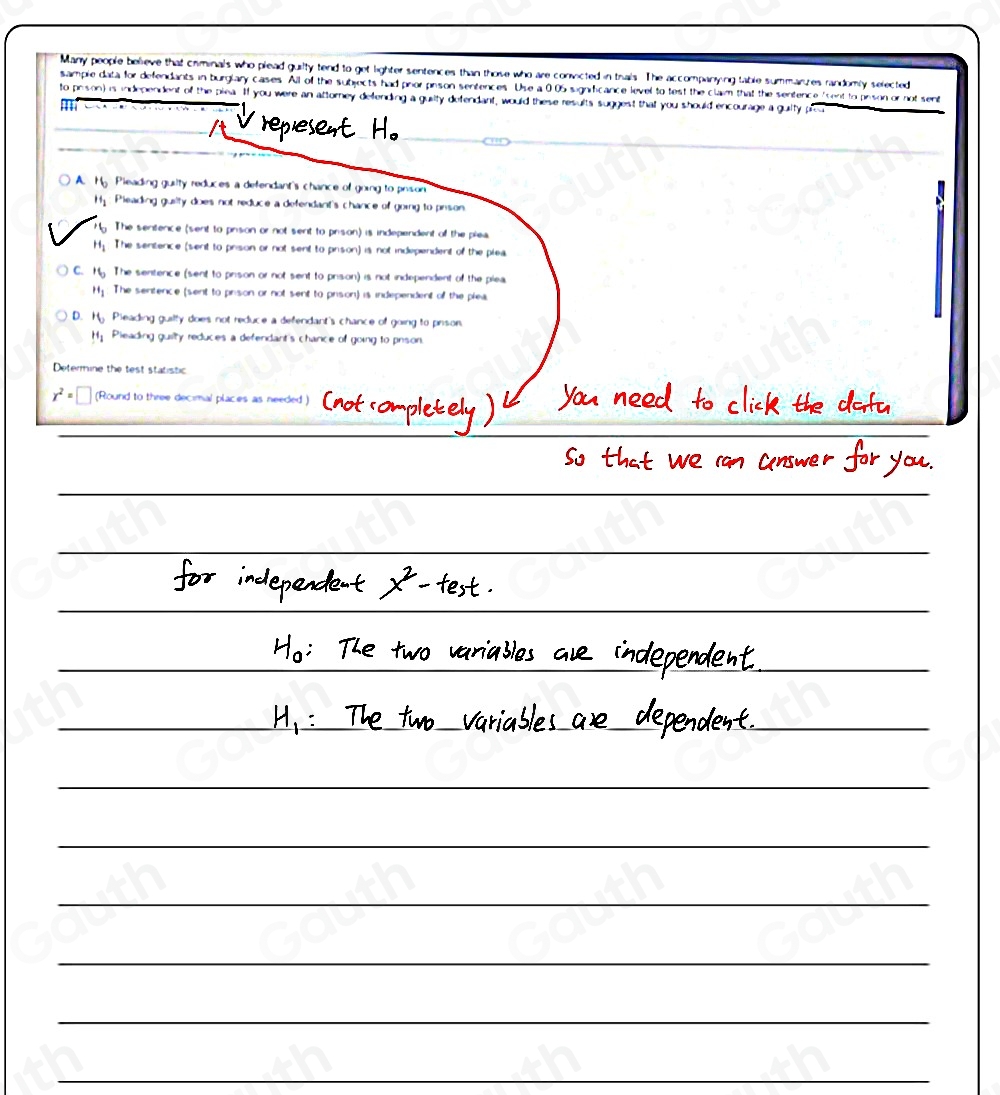 Many people believe that criminals who plead guilty tend to get lighter sentences than those who are convicted in trials. The accompanying table summarizes randomly selected
sample data for defendants in burglary cases. All of the subjects had prior prison sentences. Use a 0.05 significance level to test the claim that the sentence (sent to prison or not sent
to prison) is independent of the plea. If you were an attorney defending a guilty defendant, would these results suggest that you should encourage a guilty plea
represent H₀
A. H₀ Pleading guilty reduces a defendant's chance of going to prison
H₁ Pleading guilty does not reduce a defendant's chance of going to prison
H₀ The sentence (sent to prison or not sent to prison) is independent of the plea
H₁ The sentence (sent to prison or not sent to prison) is not independent of the plea
C. H₀ The sentence (sent to prison or not sent to prison) is not independent of the plea
H₁ The sentence (sent to prison or not sent to prison) is independent of the plea
D. H₀ Pleading guilty does not reduce a defendant's chance of going to prison
H₁ Pleading guilty reduces a defendant's chance of going to prison
Determine the test statistic
χ² = (Round to three decimal places as needed)
(not completely)
You need to click the data
so that we can answer for you.
for independent χ²-test.
H₀: The two variables are independent.
H₁: The two variables are dependent.
Gauth